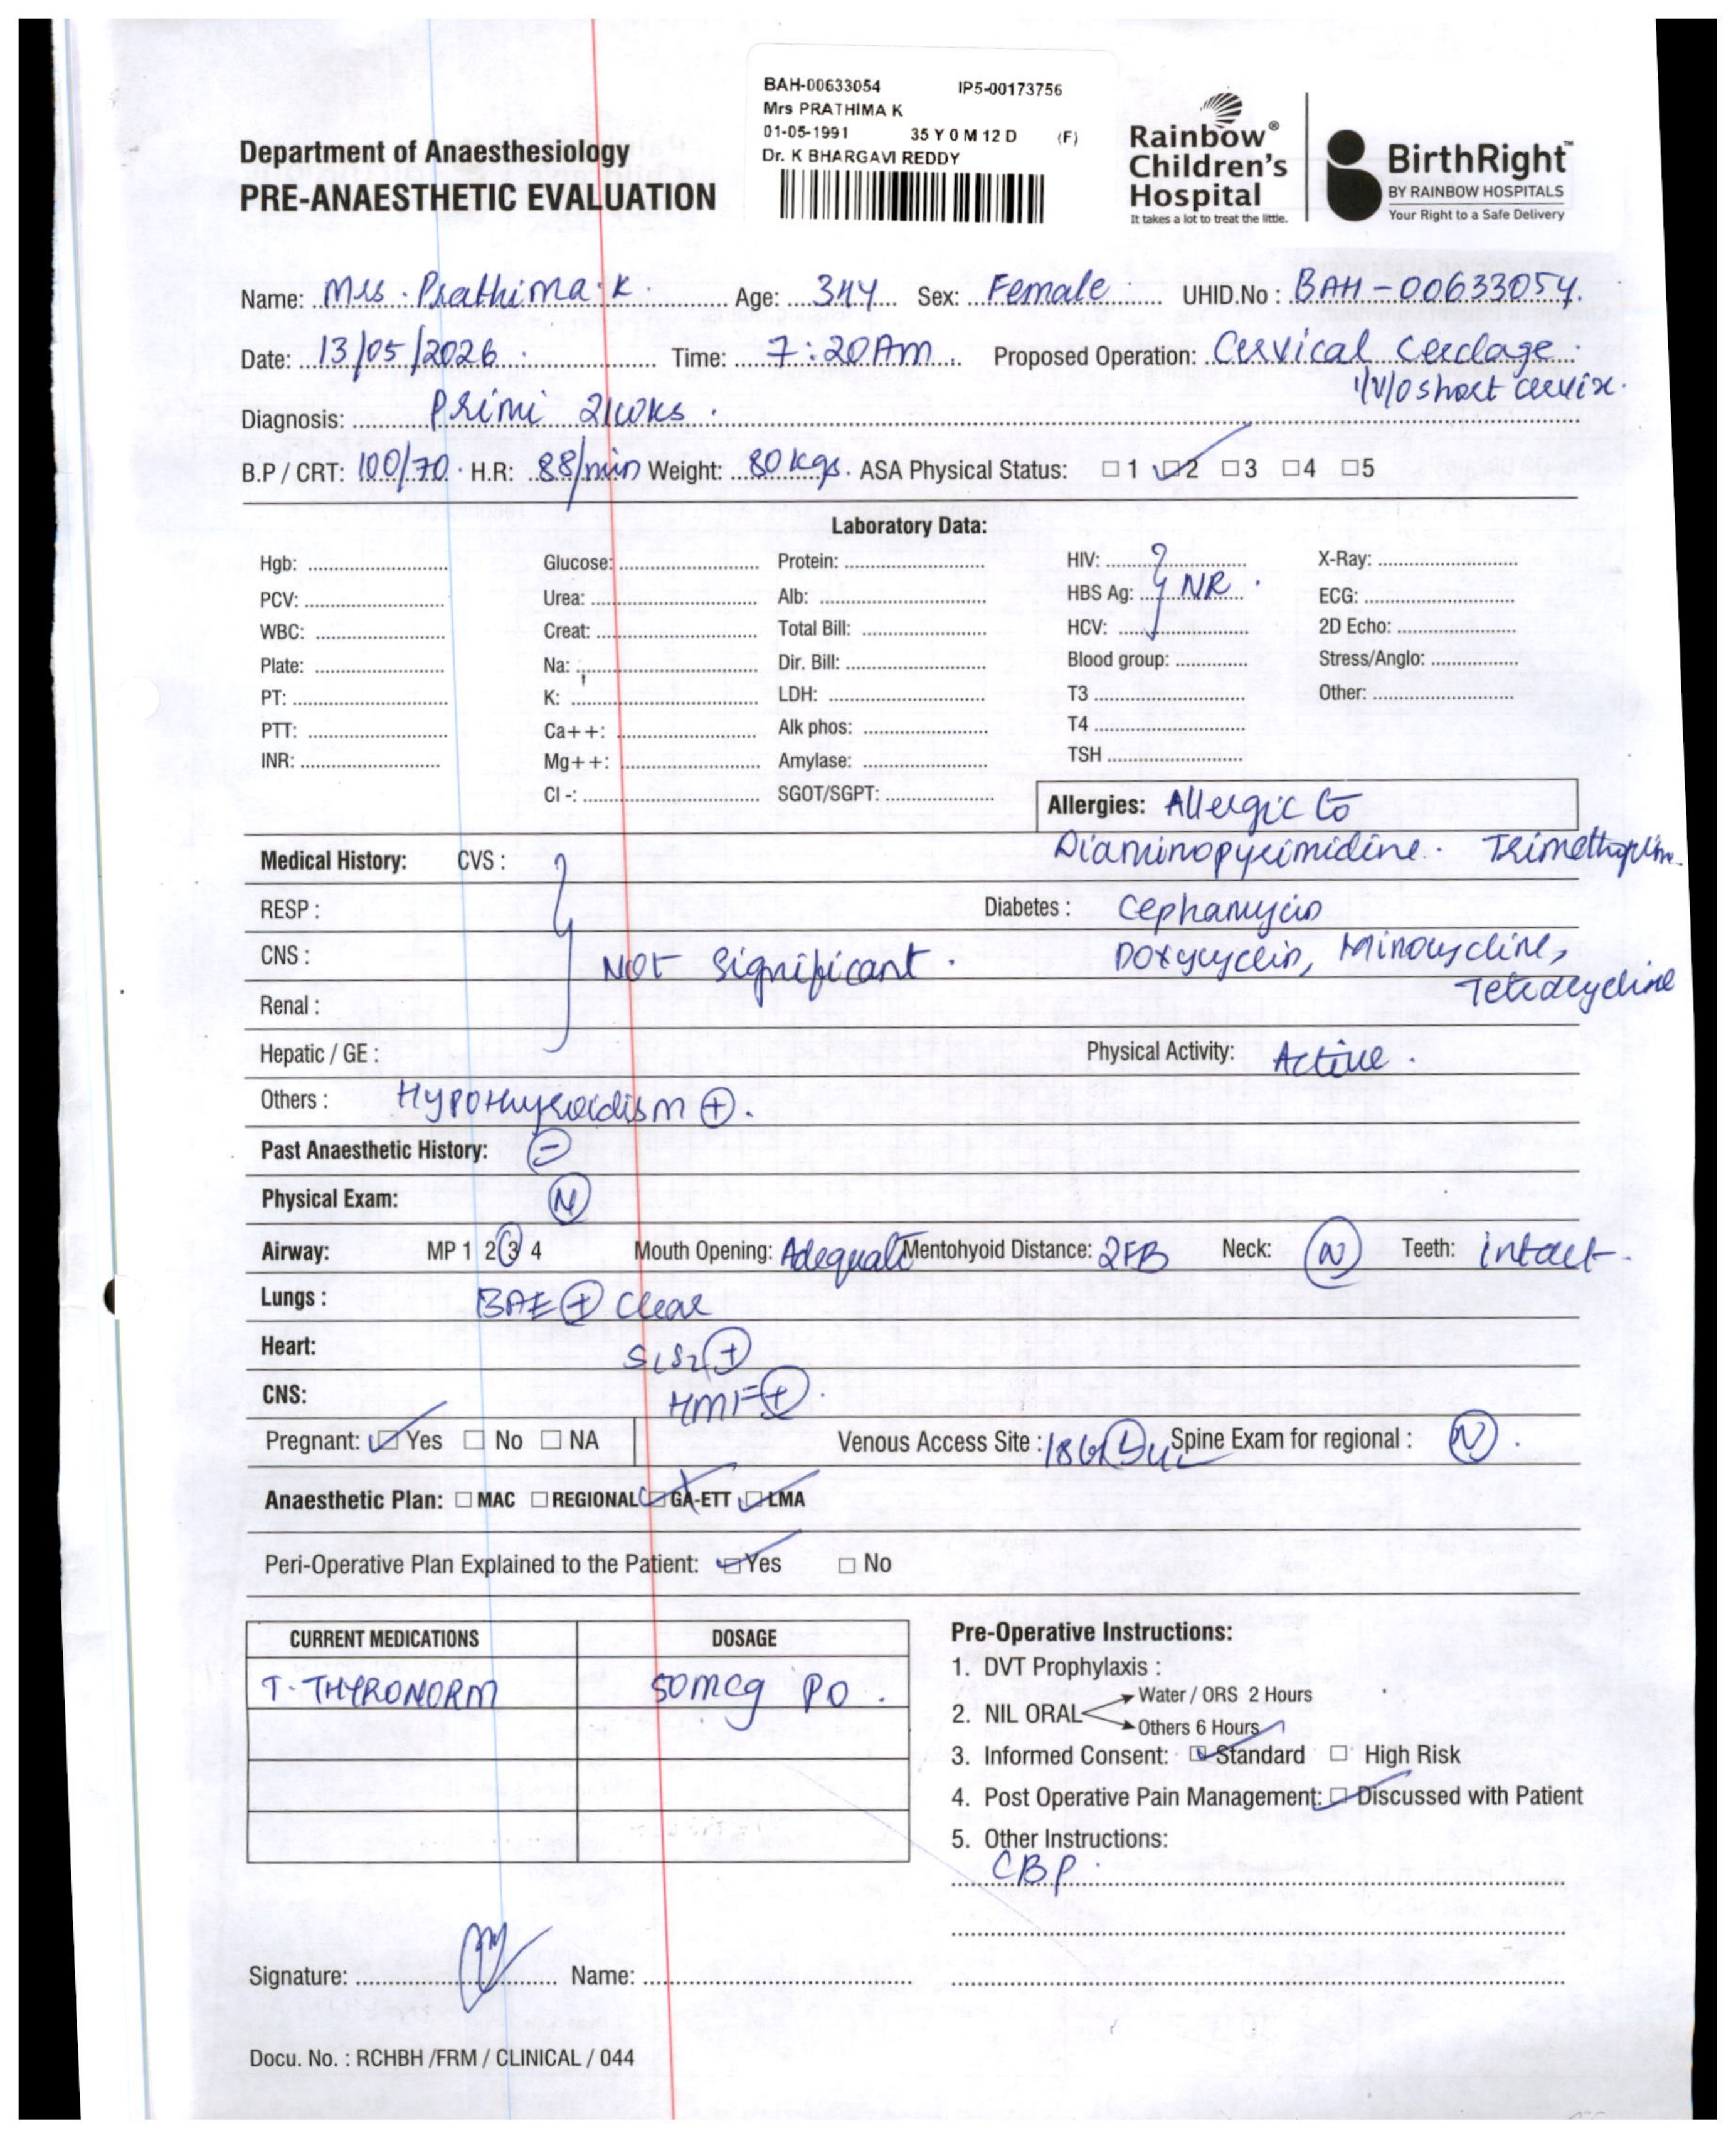 BAH-00633054 IP5-00173756
Mrs PRATHIMA K
01-05-1991 35 Y 0 M 12 D (F)
Dr. K BHARGAVI REDDY
Department of Anaesthesiology
PRE-ANAESTHETIC EVALUATION
Rainbow®
Children's
Hospital
It takes a lot to treat the little.
BirthRight™
BY RAINBOW HOSPITALS
Your Right to a Safe Delivery
Name: Mrs. Prathima.K. Age: 34Y Sex: Female UHID.No : BAH-00633054.
Date: 13/05/2026. Time: 7:20Am. Proposed Operation: Cervical Cerclage.
i/v/o short cervix.
Diagnosis: Primi 21wks.
B.P / CRT: 100/70. H.R: 88/min Weight: 80 kgs. ASA Physical Status: ☐ 1 ☑2 ☐3 ☐4 ☐5
Laboratory Data:
Hgb: Glucose: Protein: HIV: X-Ray:
PCV: Urea: Alb: HBS Ag: NR. ECG:
WBC: Creat: Total Bill: HCV: 2D Echo:
Plate: Na: Dir. Bill: Blood group: Stress/Anglo:
PT: K: LDH: T3 Other:
PTT: Ca++: Alk phos: T4
INR: Mg++: Amylase: TSH
Cl -: SGOT/SGPT:
Allergies: Allergic to
Diaminopyrimidine. Trimethoprim.
Medical History: CVS :
RESP : Diabetes : Cephamycin
CNS : NOT Significant. Doxycyclin, Minocycline,
Tetracycline
Renal :
Hepatic / GE : Physical Activity: Active.
Others : Hypothyroidism ⊕.
Past Anaesthetic History: ⊖
Physical Exam: Ⓝ
Airway: MP 1 2 ③ 4 Mouth Opening: Adequate Mentohyoid Distance: 2FB Neck: Ⓝ Teeth: intact.
Lungs : BAE ⊕ Clear
Heart: S1S2 ⊕
CNS: HMF ⊕.
Pregnant: ☑ Yes ☐ No ☐ NA Venous Access Site : 18G Ⓛ UL Spine Exam for regional : Ⓝ.
Anaesthetic Plan: ☐ MAC ☐ REGIONAL ☑ GA-ETT ☑ LMA
Peri-Operative Plan Explained to the Patient: ☑ Yes ☐ No
CURRENT MEDICATIONS DOSAGE
T. THYRONORM 50mcg PO.
Pre-Operative Instructions:
1. DVT Prophylaxis :
2. NIL ORAL Water / ORS 2 Hours
Others 6 Hours
3. Informed Consent: ☑ Standard ☐ High Risk
4. Post Operative Pain Management: ☑ Discussed with Patient
5. Other Instructions:
CBP.
Signature: Name:
Docu. No. : RCHBH /FRM / CLINICAL / 044